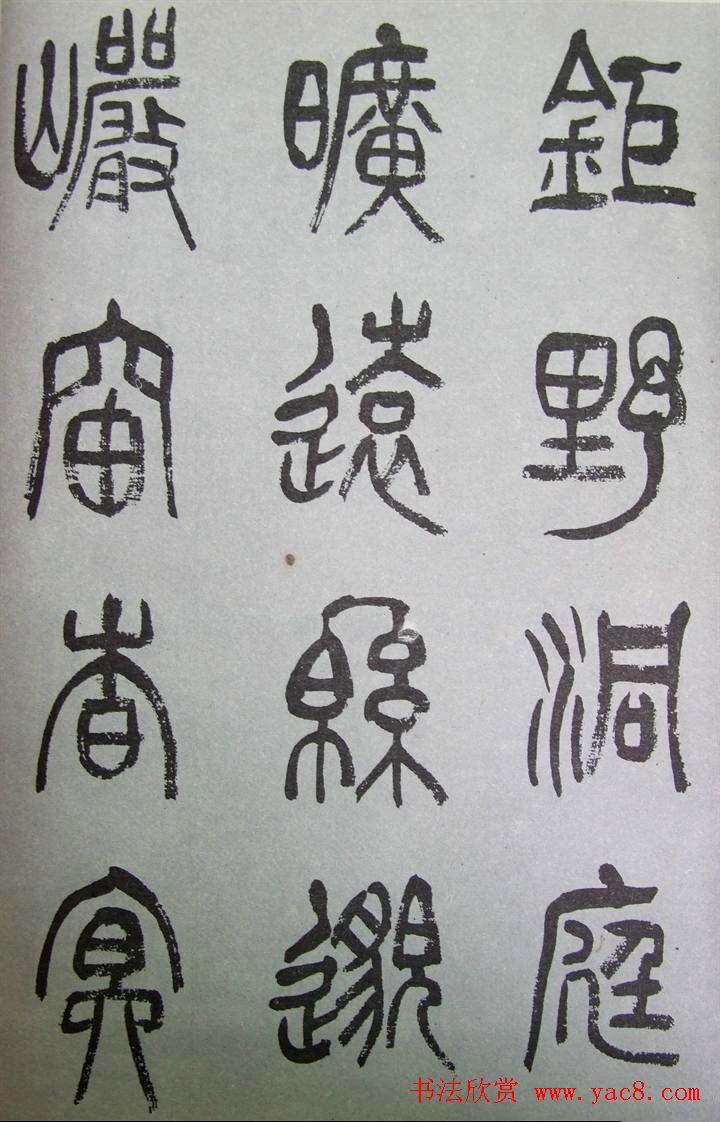 鉅野洞庭
曠遠緜邈
巖岫杳冥
书法欣赏 www.yac8.com